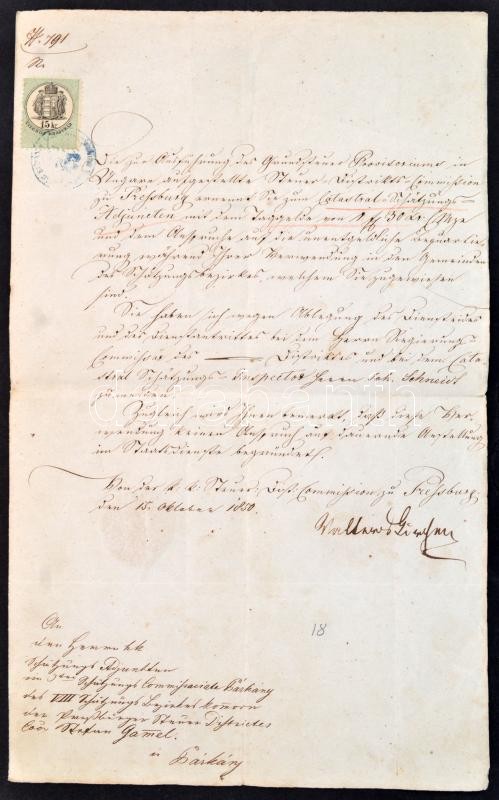 N. 791
N.
15 kr
Die zur Ausführung des Grundsteuer Provisoriums in
Ungarn aufgestellte Steuer-Distrikts-Commission
zu Preßburg ernennt Sie zum Catastral-Schätzungs-
Adjuncten mit dem Taggelde von 1 f 30 kr CMze
und dem Anspruche auf die unentgeldliche Bequartie-
rung während Ihrer Verwendung in den Gemeinden
des Schätzungsbezirkes, welchem Sie zugewiesen
sind.
Sie haben sich wegen Ablegung des Diensteides
und des Dienstantrittes bei dem Herrn Regierungs-
Commissär des Distriktes und bei dem Cata-
stral Schätzungs-Inspector Herrn Joh. Schmidt
zu melden.
Zugleich wird Ihnen bemerkt, daß diese Ver-
wendung keinen Anspruch auf dauernde Anstellung
im Staatsdienste begründet.
Von der k. k. Steuer-Dist. Commission zu Preßburg
den 15. Oktober 1850.
18
An
den Herrn kk
Schätzungs Adjunkten
im Schätzungs Commissariate Párkány
des VIII Schätzungs Bezirkes Komorn
des Preßburger Steuer Distriktes
Stefan Gamel.
in Párkány